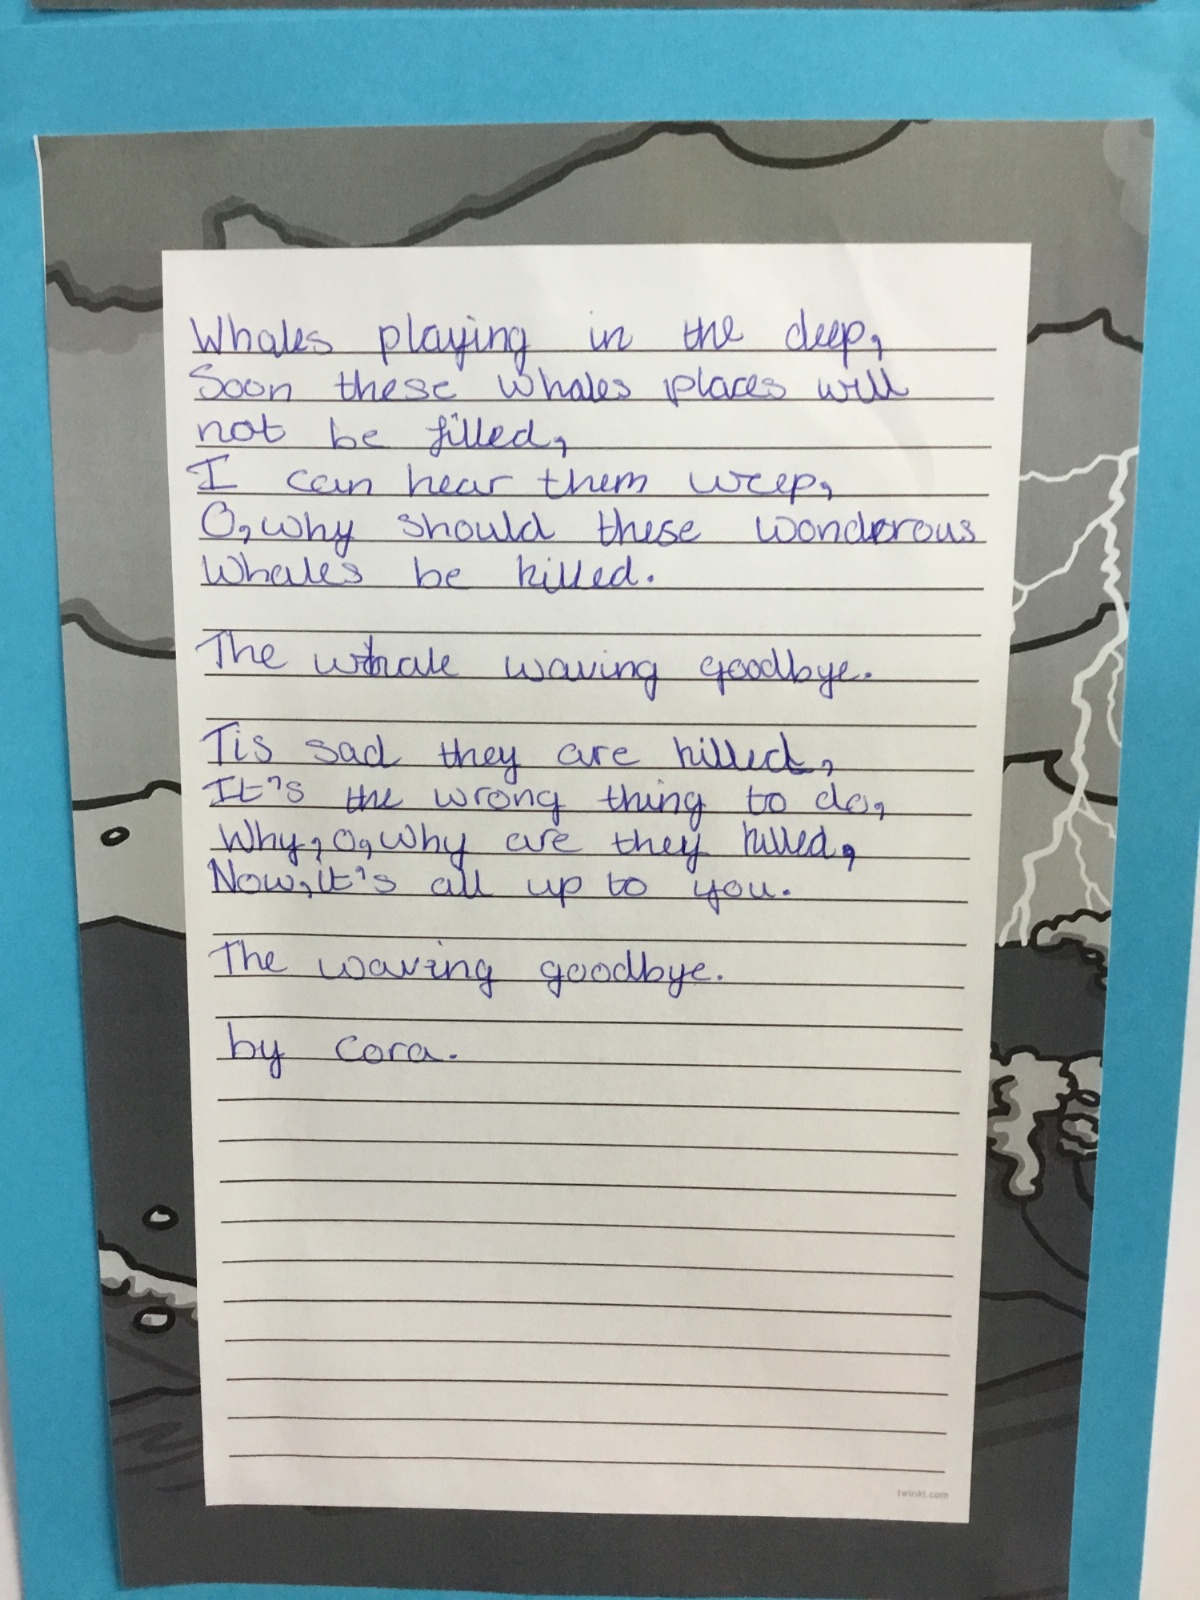 Whales playing in the deep,
Soon these whales places will
not be filled,
I can hear them weep,
O, why should these wonderous
Whales be killed.
The whale waving goodbye.
Tis sad they are killed,
It's the wrong thing to do,
Why, O, why are they killed,
Now, it's all up to you.
The waving goodbye.
by Cora.
twinkl.com